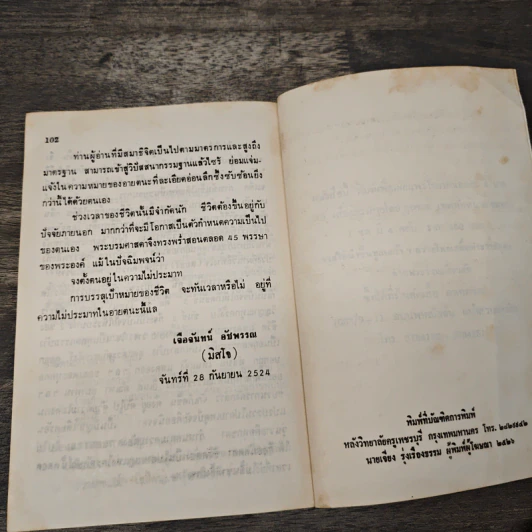 102
ท่านผู้อ่านที่มีสมาธิจิตเป็นไปตามมาตรการและสูงถึง
มาตรฐาน สามารถเข้าสู่วิปัสสนากรรมฐานแล้วไซร้ ย่อมแจ่ม-
แจ้งในความหมายของอายตนะที่ละเอียดอ่อนลึกซึ้งซับซ้อนยิ่ง
กว่านี้ได้ด้วยตนเอง
ช่วงเวลาของชีวิตนั้นมีจำกัดนัก ชีวิตต้องขึ้นอยู่กับ
ปัจจัยภายนอก มากกว่าที่จะมีโอกาสเป็นตัวกำหนดความเป็นไป
ของตนเอง พระบรมศาสดาจึงทรงพร่ำสอนตลอด 45 พรรษา
ของพระองค์ แม้ในปัจฉิมพจน์ว่า
จงตั้งตนอยู่ในความไม่ประมาท
การบรรลุเป้าหมายของชีวิต จะทันเวลาหรือไม่ อยู่ที่
ความไม่ประมาทในอายตนะนี้แล
เจือจันทน์ อัชพรรณ
(มิสโจ)
จันทร์ที่ 28 กันยายน 2524
พิมพ์ที่บัณฑิตการพิมพ์
หลังวิทยาลัยครูเพชรบุรี กรุงเทพมหานคร โทร.
นายเจียง รุ่งเรืองธรรม ผู้พิมพ์ผู้โฆษณา ๒๕๒๖